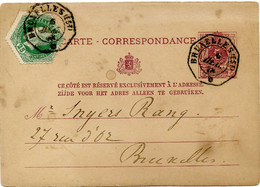 BRUXELLES (EST)
CARTE - CORRESPONDANCE
BRUXELLES (EST)
CE CÔTÉ EST RÉSERVÉ EXCLUSIVEMENT À L'ADRESSE
ZIJDE VOOR HET ADRES ALLEEN TE GEBRUIKEN.
Mr Snyers Rang,
27 rue d'Or
Bruxelles